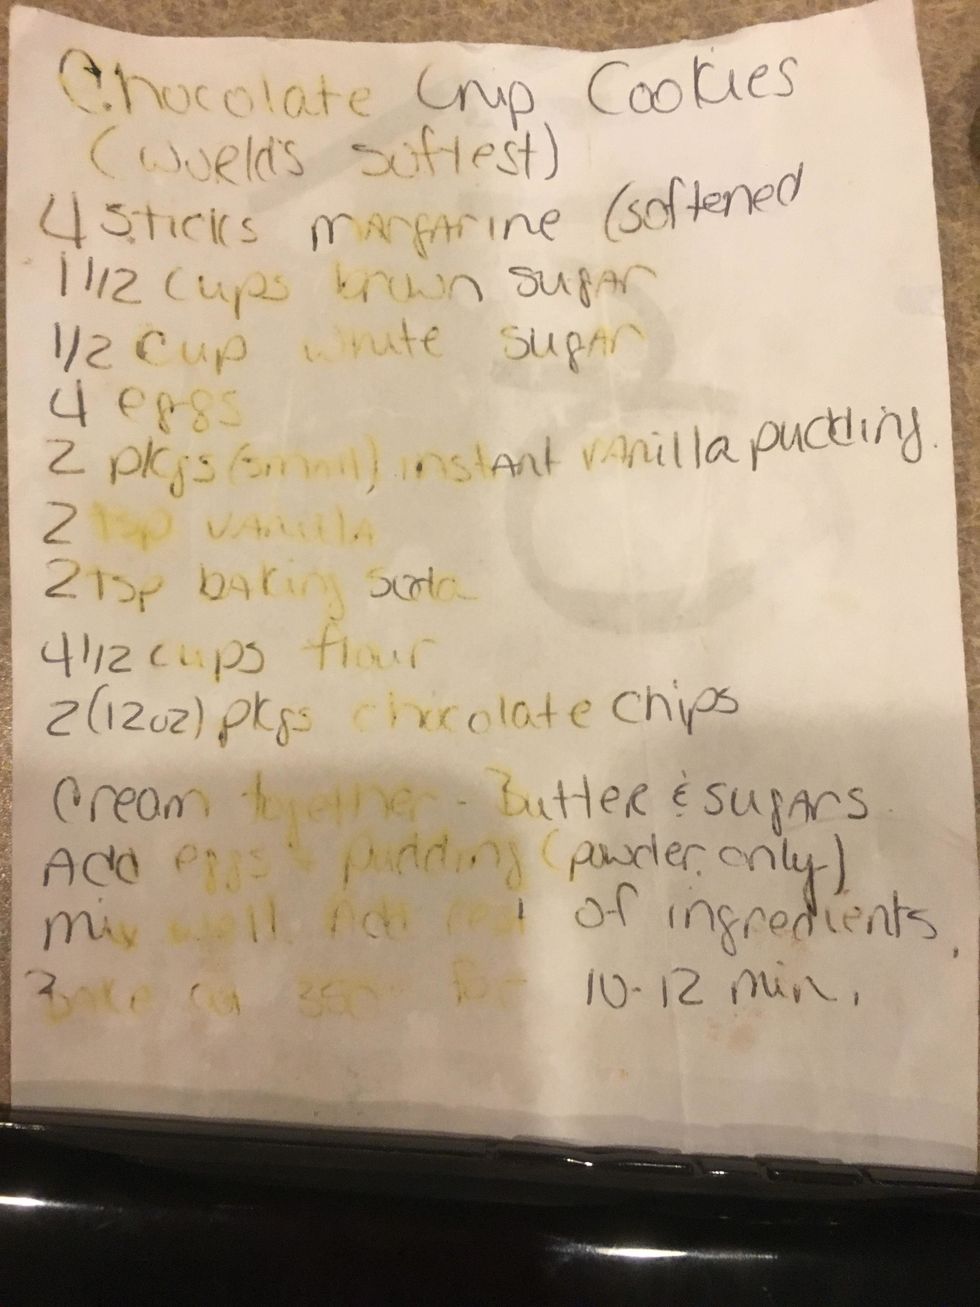 Chocolate Chip Cookies
(World's Softest)
4 sticks margarine (softened
1 1/2 cups brown sugar
1/2 cup white sugar
4 eggs
2 pkgs (small) instant vanilla pudding.
2 tsp vanilla
2 tsp baking soda
4 1/2 cups flour
2 (12oz) pkgs chocolate chips
Cream together - Butter & sugars
Add eggs & pudding (powder only)
mix well. Add rest of ingredients.
Bake at 350° for 10-12 min.